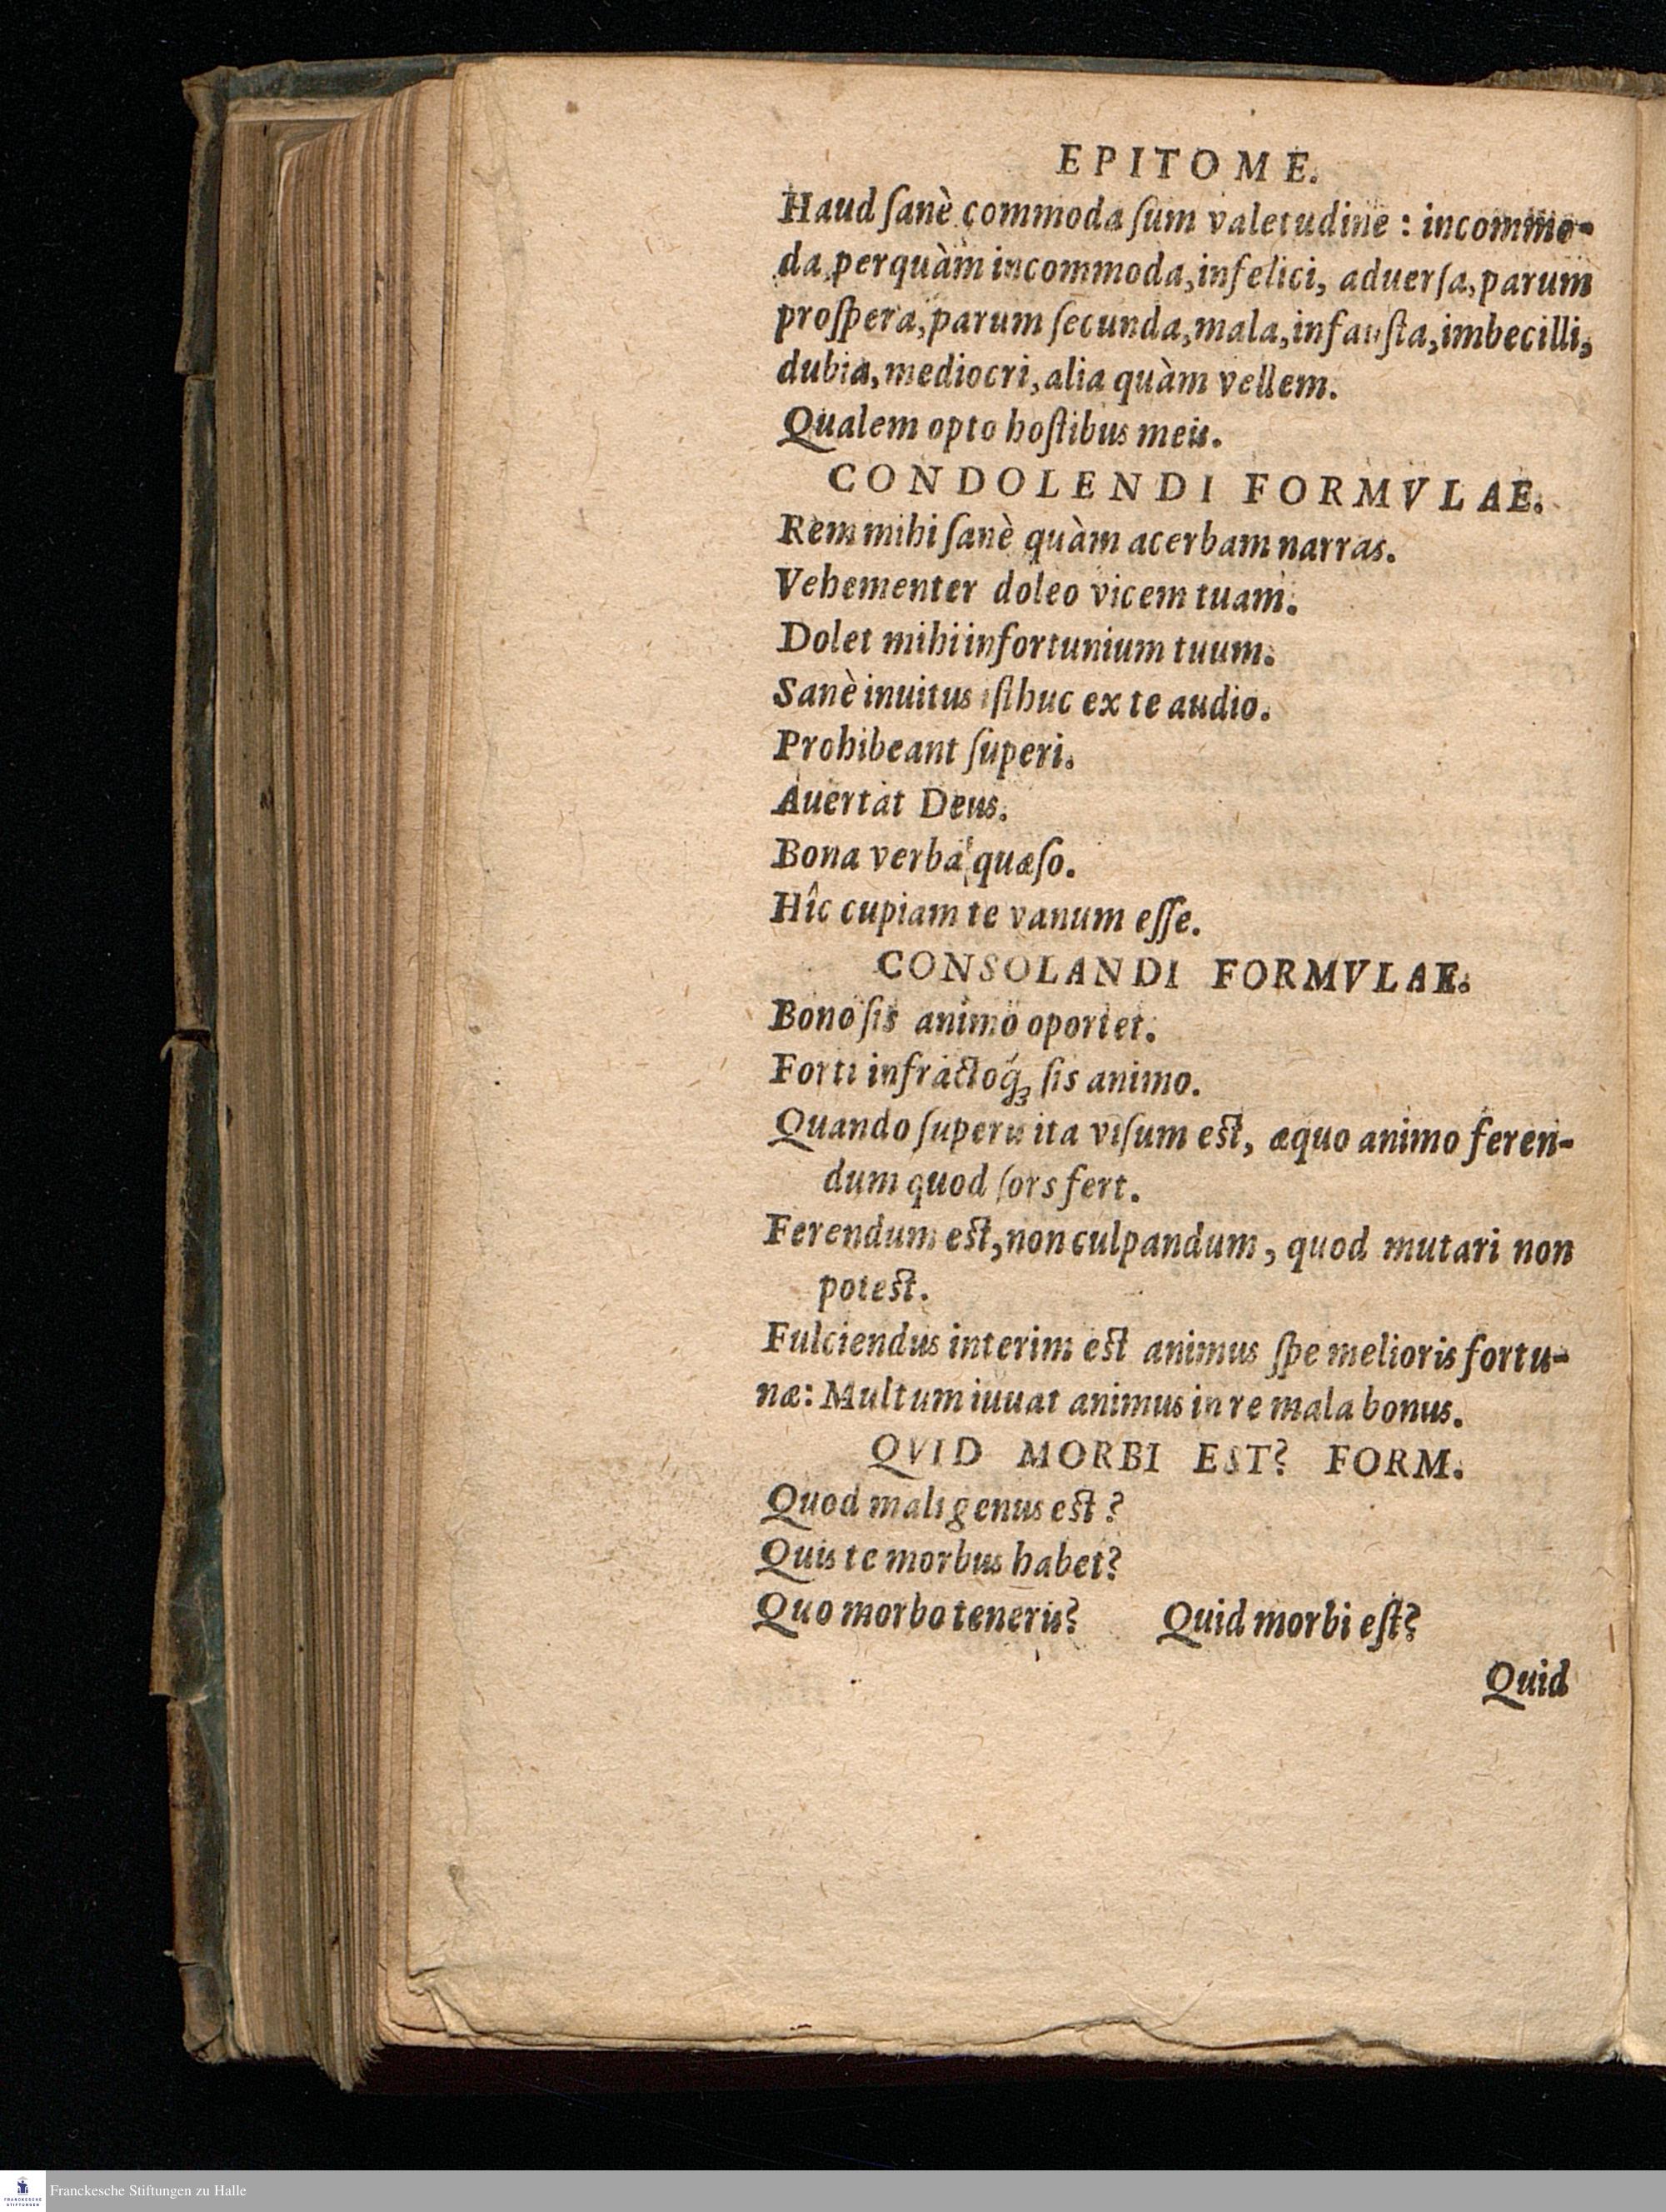 EPITOME.
Haud ſanè commoda ſum valetudine: incommo-
da, perquàm incommoda, infelici, aduerſa, parum
proſpera, parum ſecunda, mala, infauſta, imbecilli,
dubia, mediocri, alia quàm vellem.
Qualem opto hoſtibus meis.
CONDOLENDI FORMVLAE.
Rem mihi ſanè quàm acerbam narras.
Vehementer doleo vicem tuam.
Dolet mihi infortunium tuum.
Sanè inuitus iſthuc ex te audio.
Prohibeant ſuperi.
Auertat Deus.
Bona verba quæſo.
Hîc cupiam te vanum eſſe.
CONSOLANDI FORMVLAE.
Bono ſis animo oportet.
Forti infractoq́ꝫ ſis animo.
Quando ſuperis ita viſum eſt, æquo animo feren-
dum quod ſors fert.
Ferendum eſt, non culpandum, quod mutari non
poteſt.
Fulciendus interim eſt animus ſpe melioris fortu-
næ: Multum iuuat animus in re mala bonus.
QVID MORBI EST? FORM.
Quod mali genus eſt?
Quis te morbus habet?
Quo morbo teneris? Quid morbi eſt?
Quid
FRANCKESCHE STIFTUNGEN
Franckesche Stiftungen zu Halle